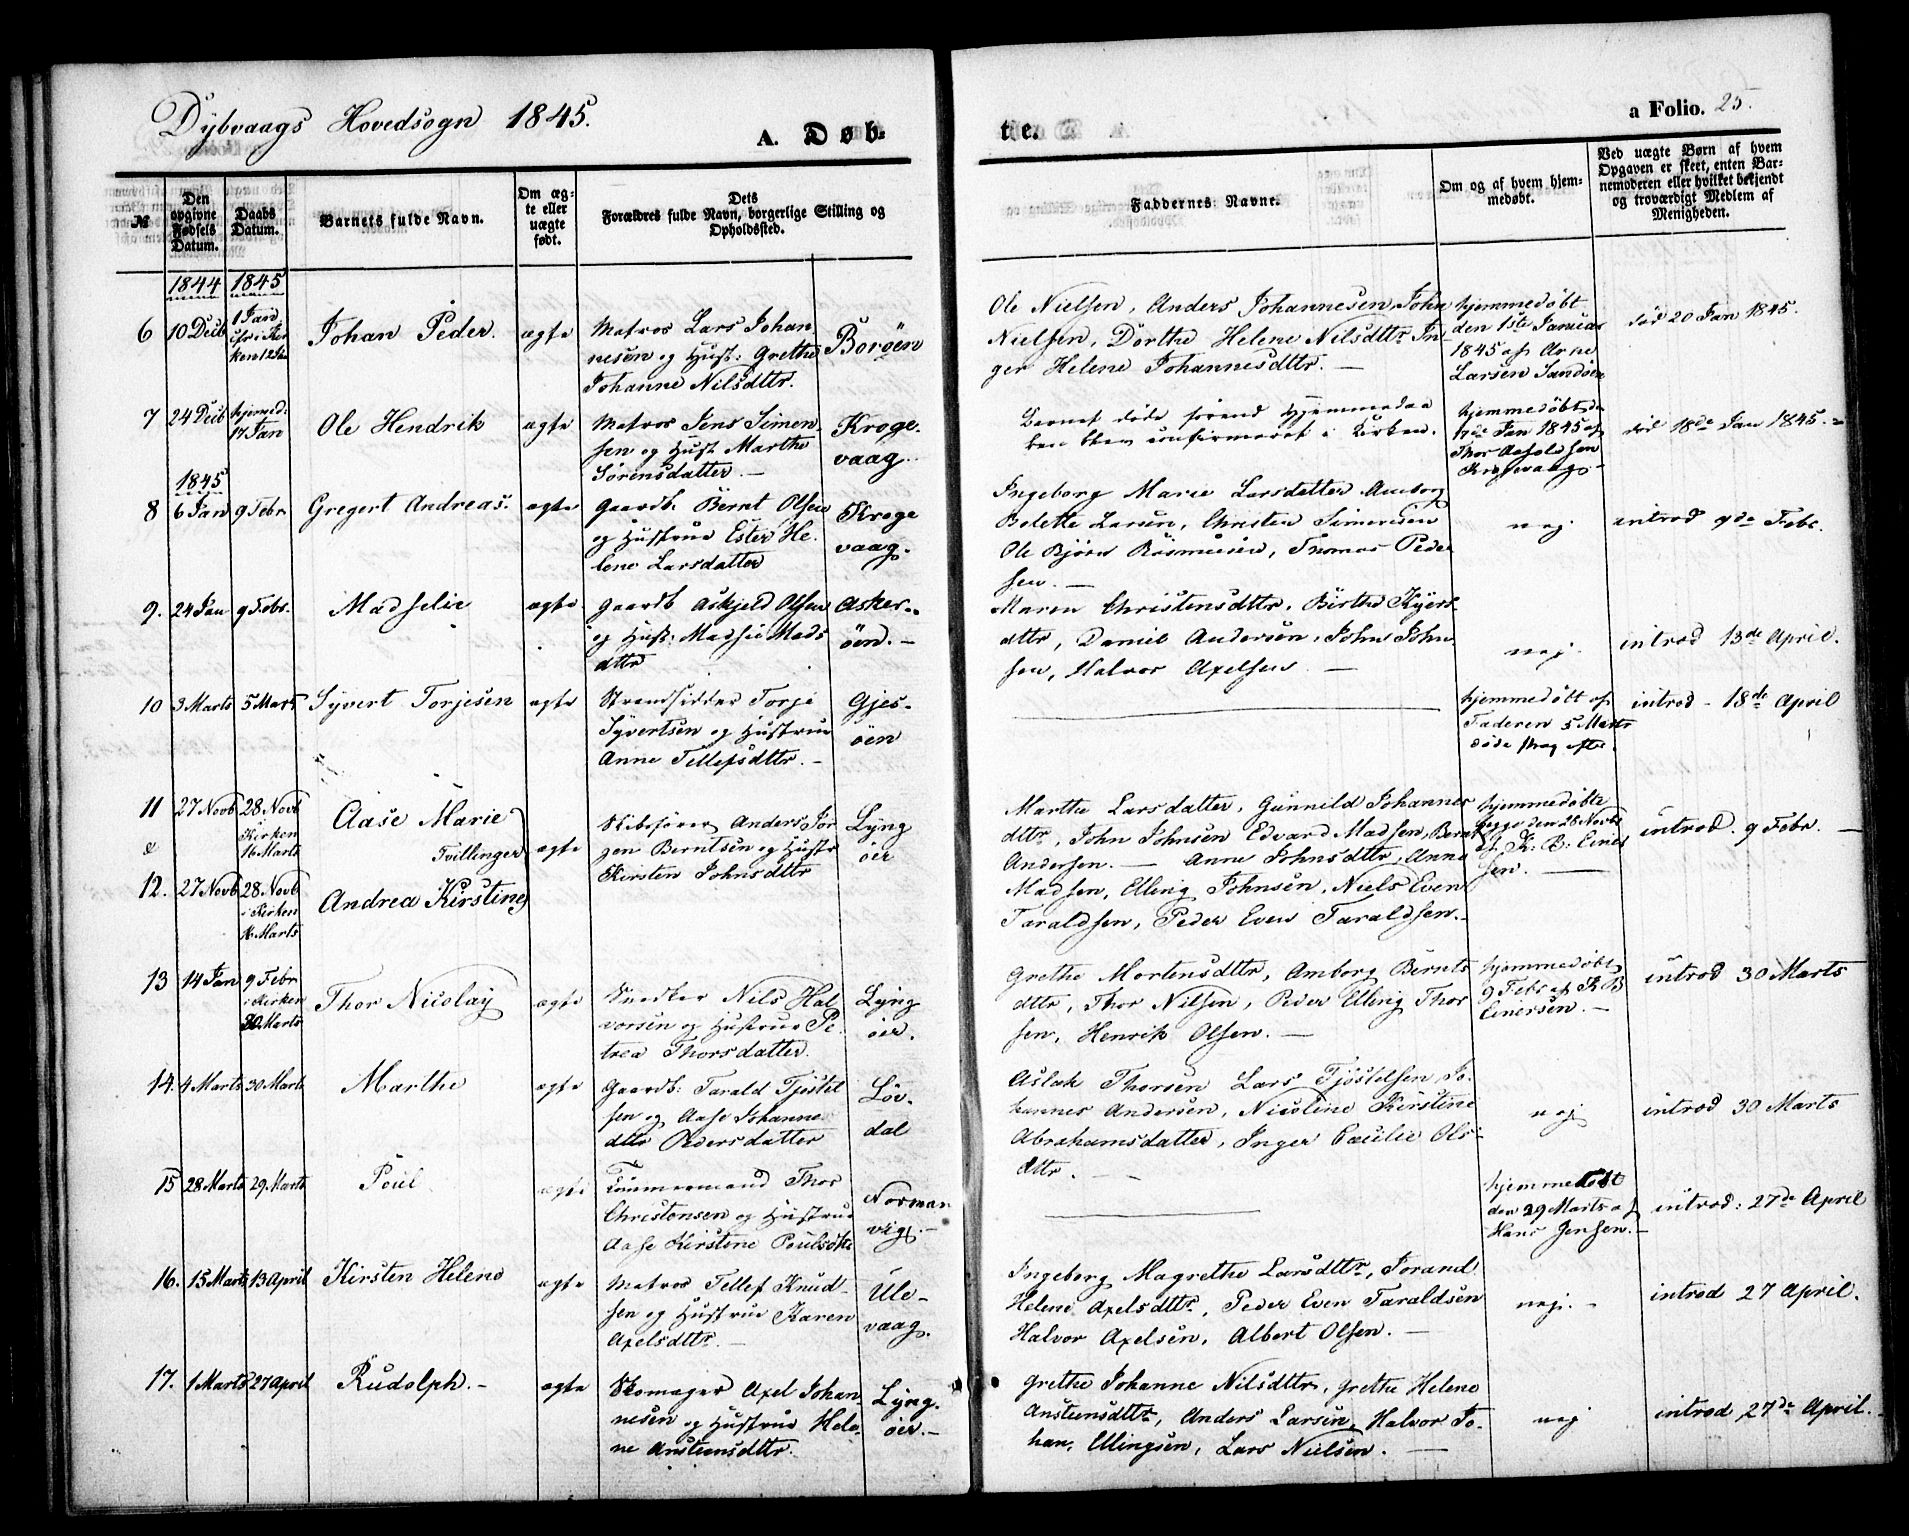 Dybvaags Hovedsogn 1845.
A. Døb-
te.
a Folio. 25.
№
Den opgivne Fødsels Datum.
Daabs Datum.
Barnets fulde Navn.
Om ægte eller uægte født.
Dets Forældres fulde Navn, borgerlige Stilling og Opholdssted.
Faddernes Navne.
Om og af hvem hjemmedøbt.
Ved uægte Børn af hvem
Opgaven er skeet, enten Bar-
nemoderen eller hvilket bekjendt
og troværdigt Medlem af
Menigheden.
1844 1845
6 10 Decb 1 Jan
Johan Peder. ægte
Matros Lars Johan
nesen og Hust: Grethe
Johanne Nilsdttr.
Boröen
Ole Nielsen, Anders Johannesen, John
Nielsen, Dorthe Helene Nilsdttr In-
ger Helene Johannesdttr. —
hjemmedøbt
den 1ste Januar
1845 af Arne
Larsen Sandöen
död 20 Jan 1845.
7 24 Decb hjemmed: 17 Jan
Ole Hendrik ægte
Matros Jens Simon-
sen og Hust Marthe
Sörensdatter. —
Kroge-
vaag.
Barnet döde förend Hjemmedaa
ben blev confirmeret i Kirken.
hjemmedøbt de
17de Jan 1845 af
Thor Aasoldsen
Krogevaag —
död 18de Jan 1845. =
1845
8 6 Jan 9 Febr
Gregert Andreas. ægte
Gaardb. Bernt Olsen
og Hustrue Ester He-
lene Larsdatter
Kroge
vaag.
Ingeborg Marie Larsdatter Amborg
Bolette Larsen, Christen Simonsen
Ole Bjørn Rasmusen, Thomas Peder
sen. —
nej.
introd 9de Febr.
9. 24 Jan 9 Febr.
Madselie ægte
Gaardb Askjeld Olsen
og Hust: Madsie Mads
dttr
Asker-
öen. —
Maren Christensdttr, Birthe Kjers
dttr, Daniel Andersen, John John
sen, Halvor Axelsen. —
nej.
introd 13de April.
10 3 Marts 5 Marts
Syvert Torjesen ægte
Strandsidder Torje
Syvertsen og Hustrue
Anne Tellefsdttr. —
Gjes-
öen
hjemmedøbt af
Faderen 5 Marts
döde strax efter.
introd - 18de April
11 27 Novb 28 Novb
i Kirken
16 Marts
Aase Marie
Tvillinger ægte
&
12. 27 Novb 28 Novb
i Kirken
16 Marts
Andrea Kirstine
Skibsfører Anders Jör
gen Berntsen og Hustr
Kirsten Johnsdttr
Lyng
öer
Marthe Larsdatter, Gunnild Johannes
dttr, John Johnsen Edvard Madsen, Bernt
Andersen. — Anne Johnsdttr, Anne
Madsen, Elling Johnsen, Niels Even
Taraldsen, Peder Even Taraldsen. —
hjemmedøbte
begge den 28 Novbr
af K. B. Einer
sen. —
introd. 9 Febr. —
13 14 Jan 9 Febr
i Kirken
30 Marts
Thor Nicolay ægte
Snedker Nils Hal
vorsen og Hustrue Pe-
trea Thorsdatter.
Lyng
öer.
Grethe Mortensdttr, Amborg Bernts
dttr, Thor Nilsen, Peder Elling Thor
sen, Henrik Olsen. —
hjemmedøbt
9 Febr af K B
Einersen. —
introd 30 Marts
14. 4 Marts 30 Marts
Marthe ægte
Gaardb: Tarald Tjöstel
sen og Aase Johanne
dttr Pedersdatter
Löv-
dal
Aslak Thorsen Lars Tjöstelsen Jo-
hannes Andersen, Nicoline Kirstine
Abrahamsdatter, Inger Cæcilie Ols-
dttr. —
nej
introd 30 Marts
15 28 Marts 29 Marts
Poul ægte
Tömmermand Thor
Christensen og Hustrue
Aase Kirstine Poulsdttr
Norman
vig. —
hjemmedøbt
den 29 Marts af
Hans Jensen. —
introd: 27de April
16. 15 Marts 13 April
Kirsten Helene ægte
Matros Tellef Knud-
sen og Hustrue Karen
Axelsdttr. —
Ule-
vaag.
Ingeborg Magrethe Larsdttr, Torand
Helene Axelsdttr, Peder Even Taraldsen
Halvor Axelsen, Albert Olsen. —
nej. -
introd 27 April.
17. 1 Marts 27 April
Rudolph. - ægte
Skomager Axel Johan
nesen og Hustrue Hele-
ne Anstensdttr.
Lyng-
öer. —
Grethe Johanne Nilsdttr, Grethe Helene
Anstensdttr, Anders Larsen, Halvor Jo-
han, Ellingsen, Lars Nielsen. —
nej
introd 27de April.